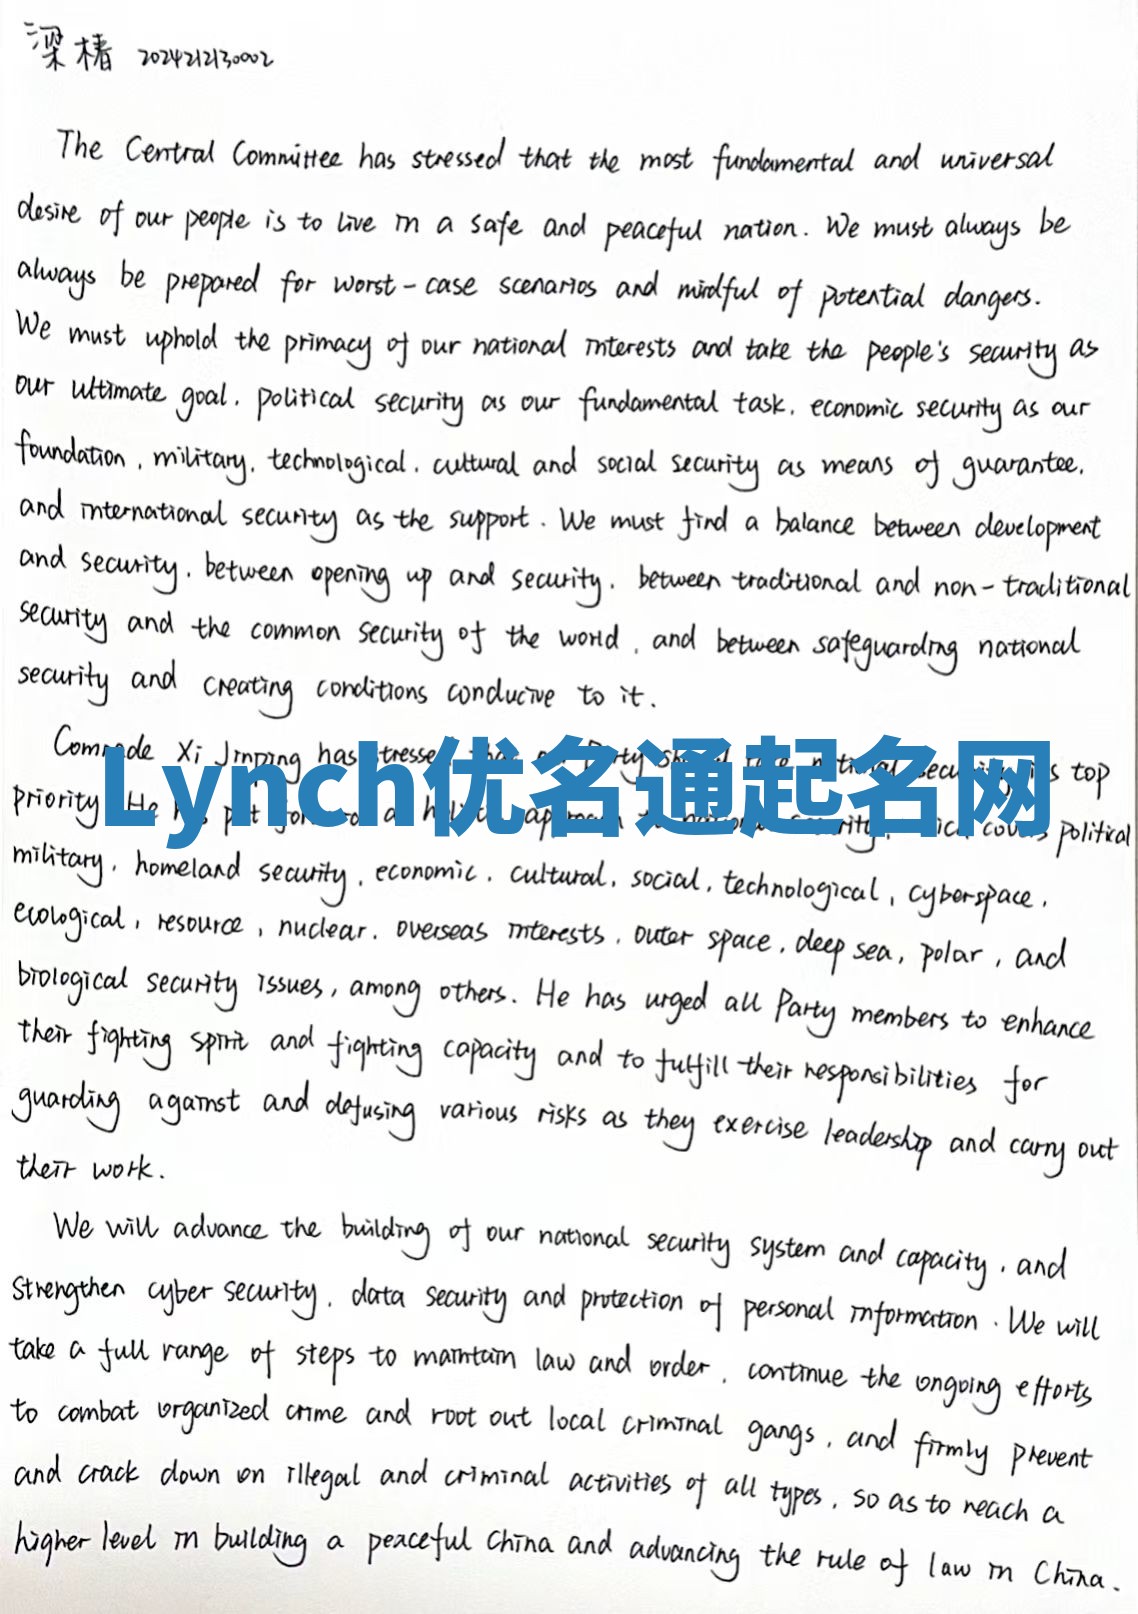 梁椿 2024212130002
The Central Committee has stressed that the most fundamental and universal
desire of our people is to live in a safe and peaceful nation. We must always be
always be prepared for worst-case scenarios and mindful of potential dangers.
We must uphold the primacy of our national interests and take the people's security as
our ultimate goal, political security as our fundamental task, economic security as our
foundation, military, technological, cultural and social security as means of guarantee,
and international security as the support. We must find a balance between development
and security, between opening up and security, between traditional and non-traditional
security and the common security of the world, and between safeguarding national
security and creating conditions conducive to it.
Comrade Xi Jinping has stressed Party top
Lynch优名通起名网
priority He put political
military, homeland security, economic, cultural, social, technological, cyberspace,
ecological, resource, nuclear, overseas interests, outer space, deep sea, polar, and
biological security issues, among others. He has urged all Party members to enhance
their fighting spirit and fighting capacity and to fulfill their responsibilities for
guarding against and defusing various risks as they exercise leadership and carry out
their work.
We will advance the building of our national security system and capacity, and
strengthen cyber security, data security and protection of personal information. We will
take a full range of steps to maintain law and order, continue the ongoing efforts
to combat organized crime and root out local criminal gangs, and firmly prevent
and crack down on illegal and criminal activities of all types, so as to reach a
higher level in building a peaceful China and advancing the rule of law in China.